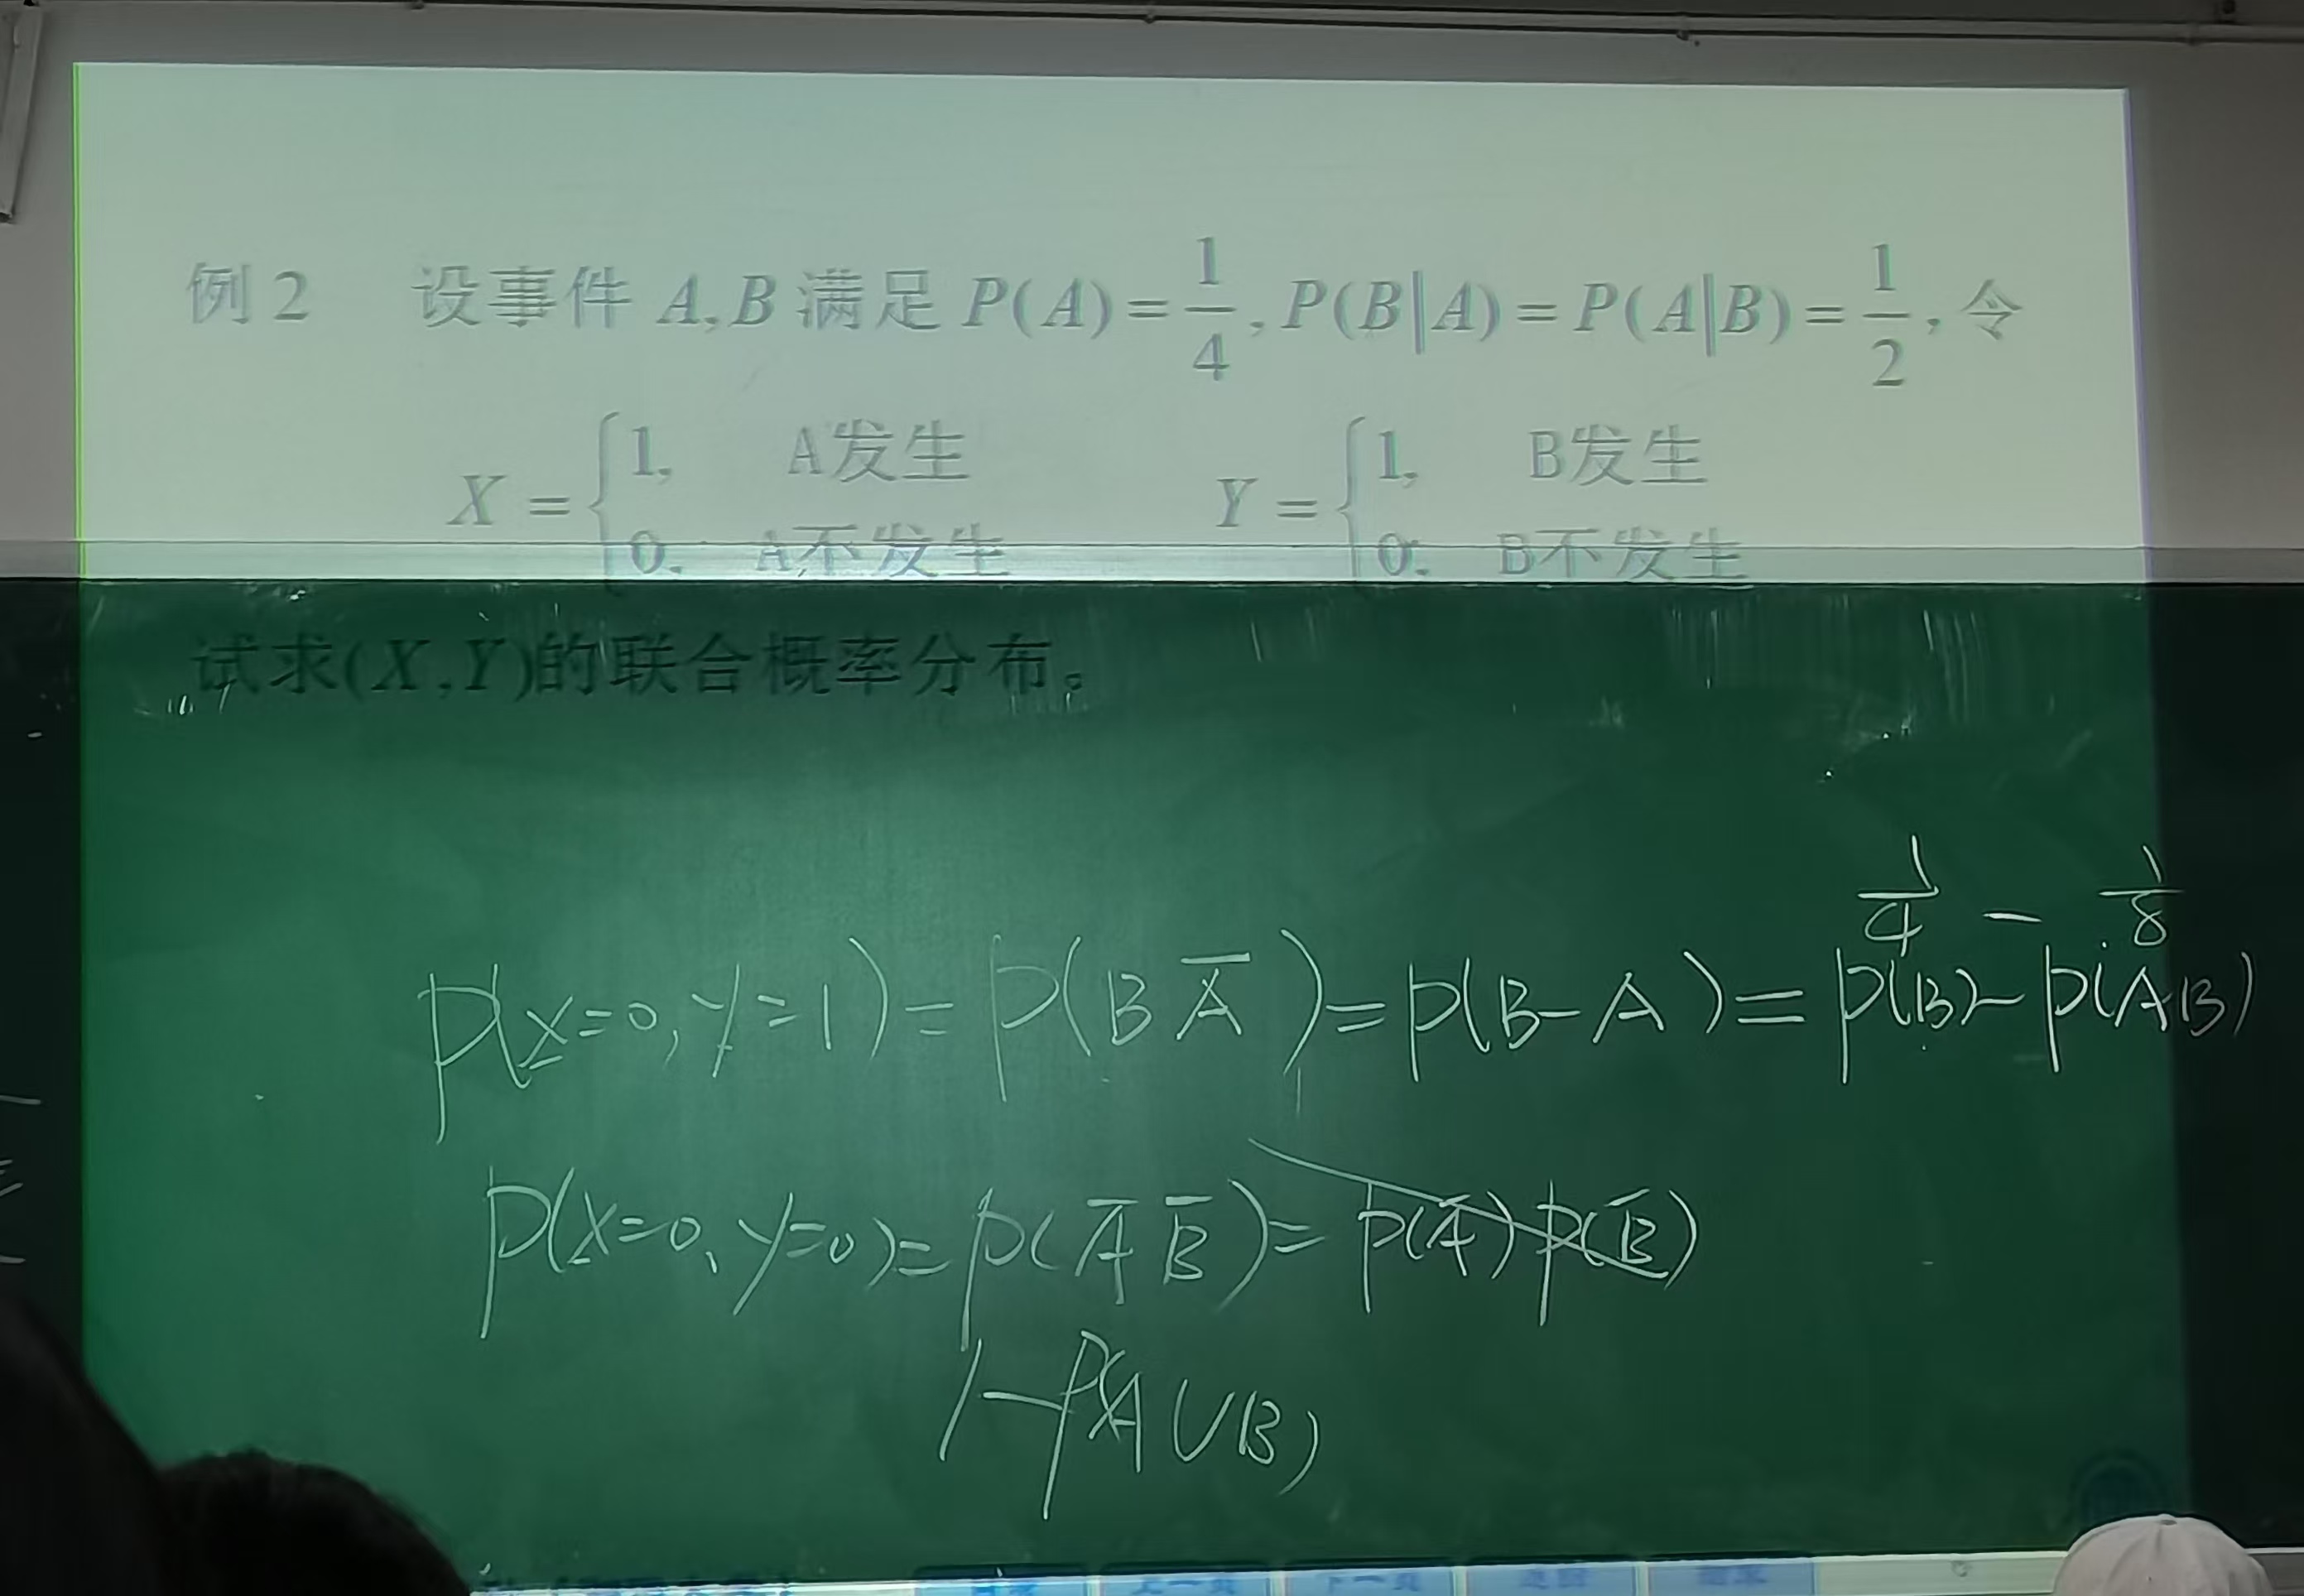 例2 设事件 A,B 满足 P(A)=1/4, P(B|A)=P(A|B)=1/2, 令
X={1, A发生 Y={1, B发生
0. A不发生 0. B不发生
试求(X,Y)的联合概率分布。
1/4 - 1/8
P(X=0,Y=1)=P(BA̅)=P(B-A)=P(B)-P(AB)
P(X=0,Y=0)=P(A̅ B̅)=P(A̅)P(B̅)
1-P(A∪B)
上一页 下一页 返回 结束